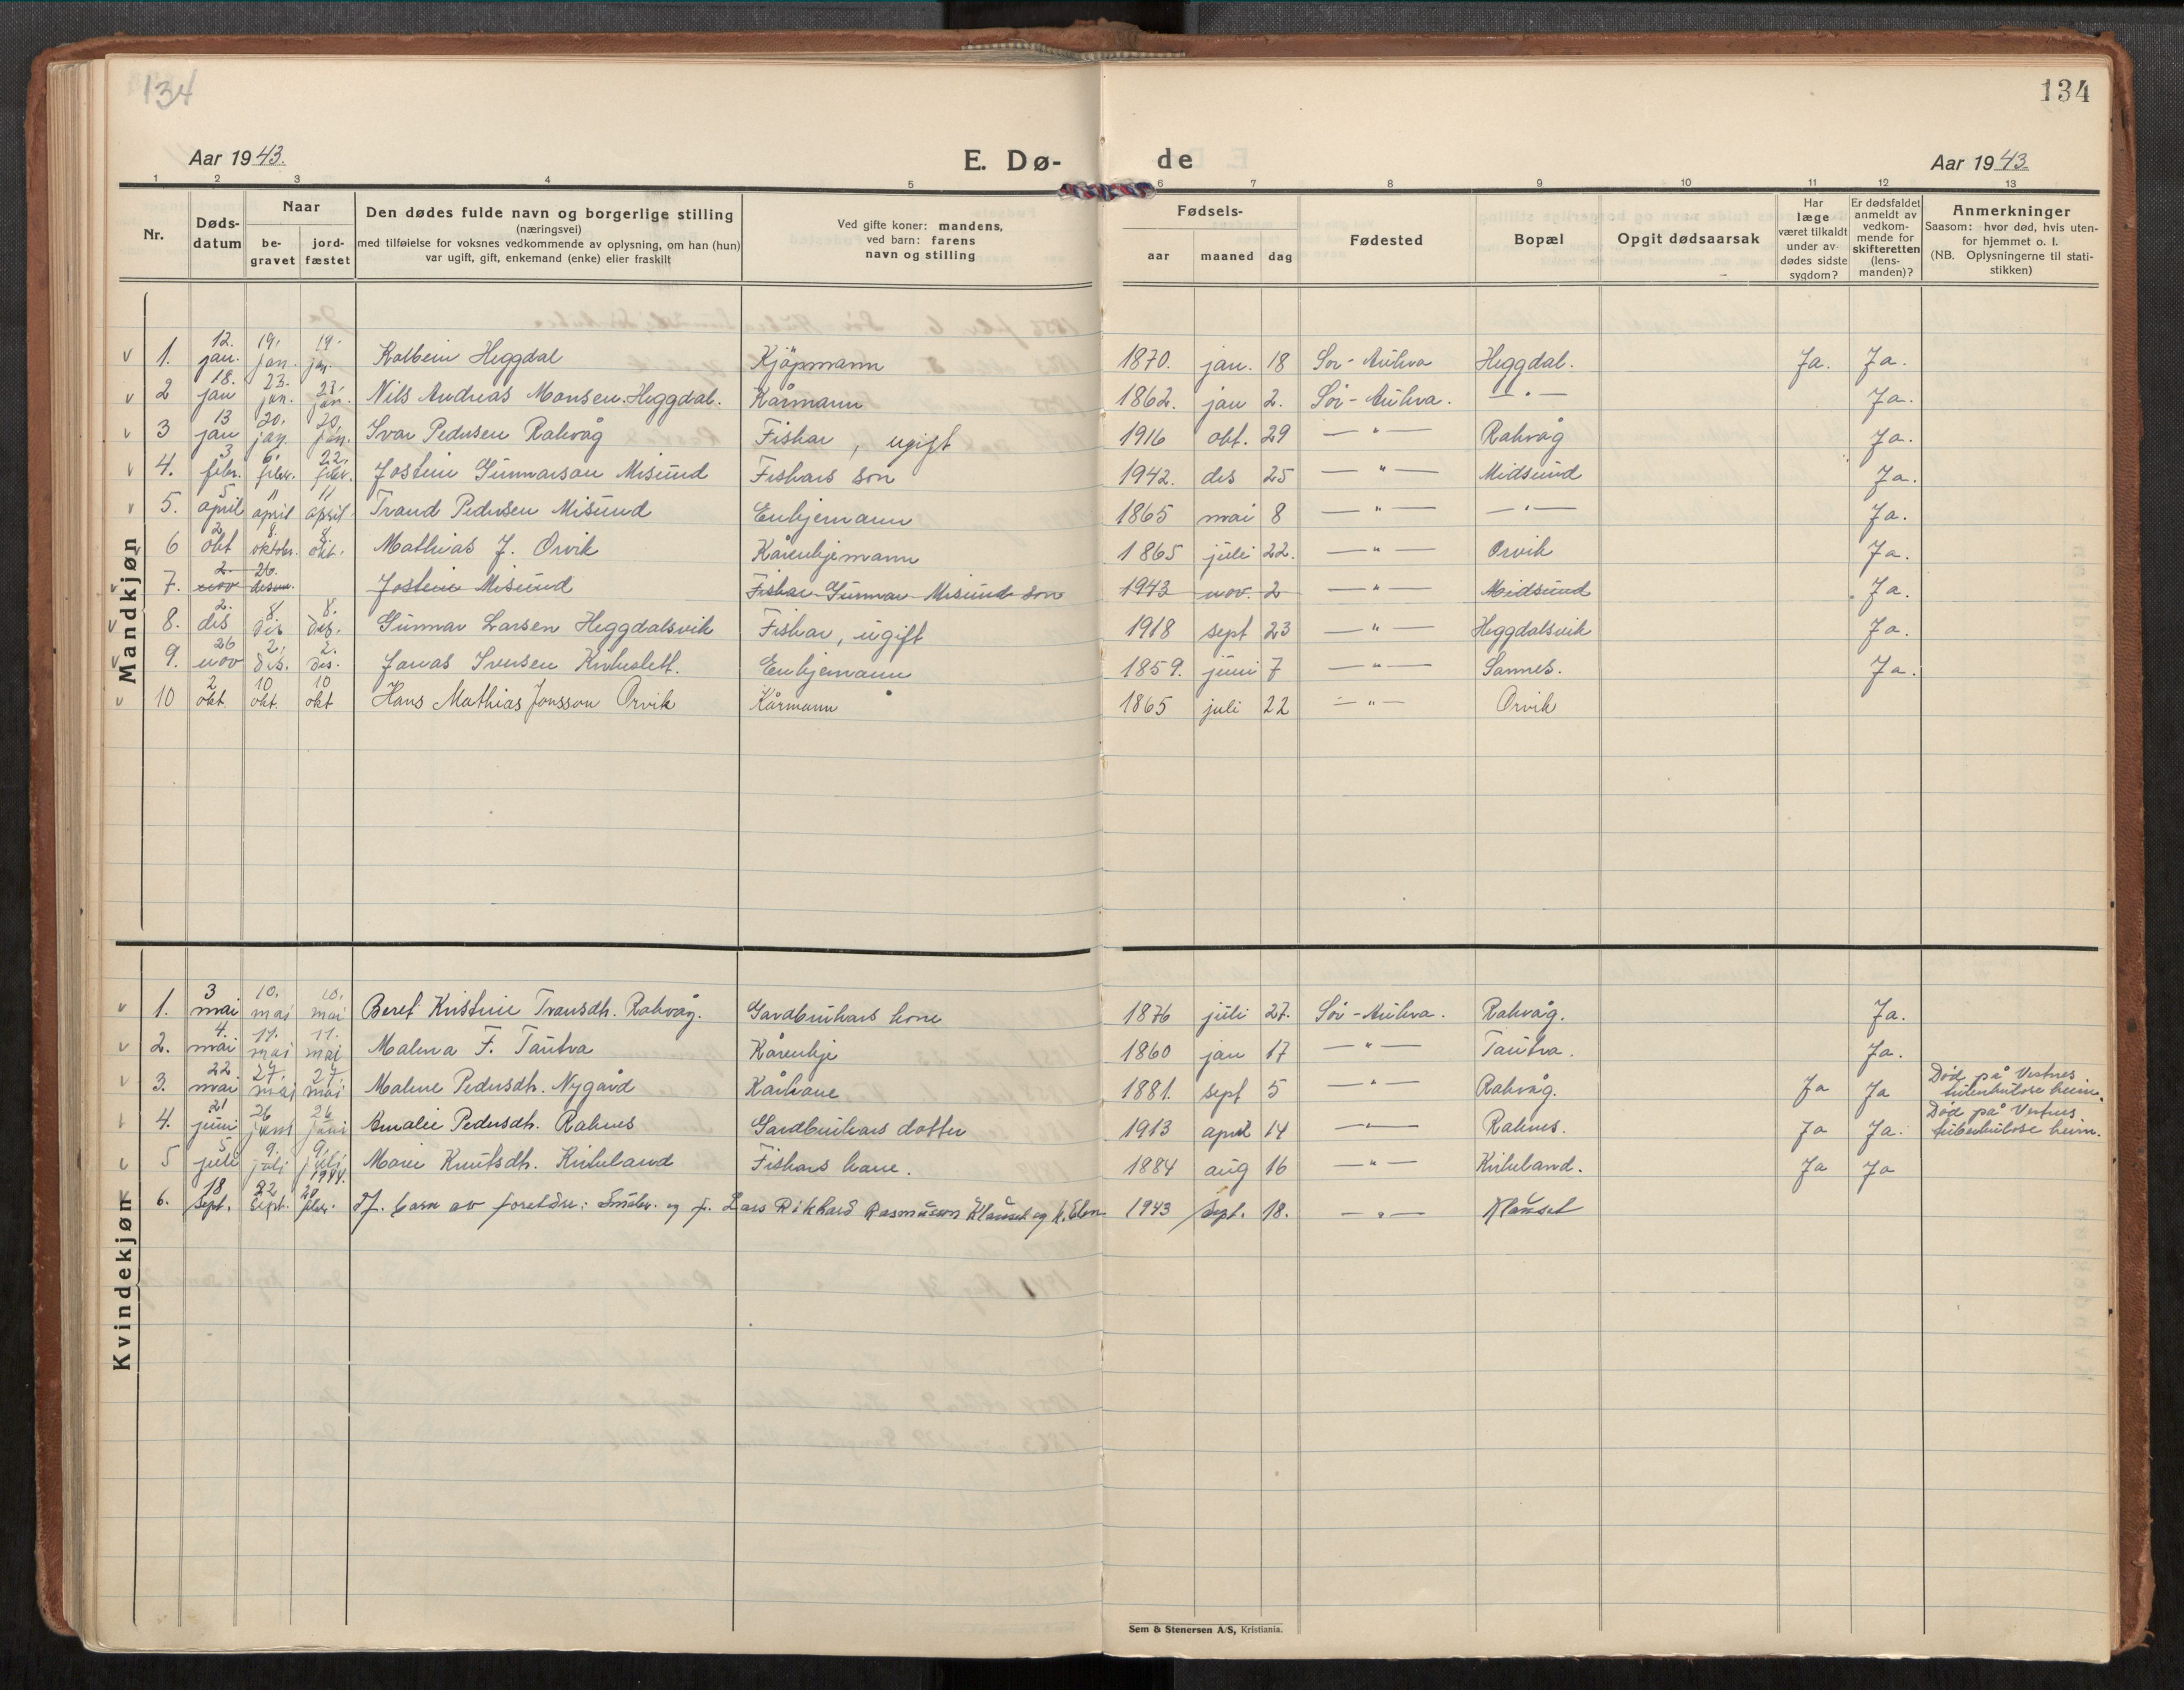 134
134
Aar 1943.
E. Dø-
de
Aar 1943.
1 2 3 4 5 6 7 8 9 10 11 12 13
Nr.
Døds-
datum
Naar
be-
gravet
jord-
fæstet
Den dødes fulde navn og borgerlige stilling
(næringsvei)
med tilføielse for voksnes vedkommende av oplysning, om han (hun)
var ugift, gift, enkemand (enke) eller fraskilt
Ved gifte koner: mandens,
ved barn: farens
navn og stilling
Fødsels-
aar maaned dag
Fødested
Bopæl
Opgit dødsaarsak
Har
læge
været tilkaldt
under av-
dødes sidste
sygdom?
Er dødsfaldet
anmeldt av
vedkom-
mende for
skifteretten
(lens-
manden)?
Anmerkninger
Saasom: hvor død, hvis uten-
for hjemmet o. l.
(NB. Oplysningerne til stati-
stikken)
Mandkjøn
v 1. 12. jan. 19. jan. 19. jan. Kolbein Heggdal Kjöpmann 1870. jan. 18 Sör-Aukra Heggdal. Ja. Ja.
v 2 18. jan 23. jan. 23. jan. Nils Andreas Monsen Heggdal. Kårmann 1862. jan 2. Sör-Aukra. — " — Ja.
v 3 13 jan 20. jan. 20. jan. Ivar Pedersen Rakvåg Fiskar, ugift 1916 okt. 29 — " — Rakvåg Ja.
v 4. 3 febr. 6. febr. 22. febr. Jostein Gunnarson Misund Fiskars son 1942. des 25 — " — Midsund Ja.
v 5. 5 april 11 april 11 april Trand Pedersen Misund Enkjemann 1865 mai 8 — " — — " — Ja.
6 2 okt 8. oktober. 8. okt. Mathias J. Orvik Kårenkjemann 1865 juli 22. — " — Orvik Ja.
v 7. 2. nov 26. desem. Jostein Misund Fiskar Gunnar Misund son 1943 nov. 2 — " — Midsund Ja.
v 8. 2. des 8. des 8. des. Gunnar Larsen Heggdalsvik Fiskar, ugift 1918 sept 23 — " — Heggdalsvik Ja.
v 9. 26 nov 2. des. 2. des. Jonas Iversen Kirkeslett. Enkjemann 1859. juni 7 — " — Sannes. Ja.
v 10 2 okt. 10 okt. 10 okt Hans Mathias Jonsson Orvik Kårmann 1865 juli 22 — " — Orvik
Kvindekjøn
v 1. 3 mai 10. mai 10. mai Beret Kristine Transdh. Rakvåg. Gardbrukars kone 1876 juli 27. Sör-Aukra. Rakvåg. Ja.
v 2. 4. mai 11. mai 11. mai Malena F. Tautra Kårenkje 1860 jan 17 — " — Tautra. Ja.
v 3. 22. mai 27. mai 27. mai Malene Pedersdh. Nygård Kårkone 1881. sept 5 — " — Rakvåg. Ja Ja Död på Vestnes
tuberkulose heim.
4. 21 juni 26 juni 26 juni Amalie Pedersdh. Raknes Gardbrukars dotter 1913 april 14 — " — Raknes. Ja Ja. Död på Vestnes
tuberkulose heim.
5 5 juli 9. juli 9. juli Marie Knutsdh. Kirkeland Fiskars kone. 1884 aug 16 — " — Kirkeland. Ja Ja
6. 18 sept. 22 sept. 20 febr. 1944. Df. barn av foreldre: Småbr. og f. Lars Rikhard Rasmussen Klauset og k. Elen 1943 sept. 18. — " — Klauset
Sem & Stenersen A/S, Kristiania.